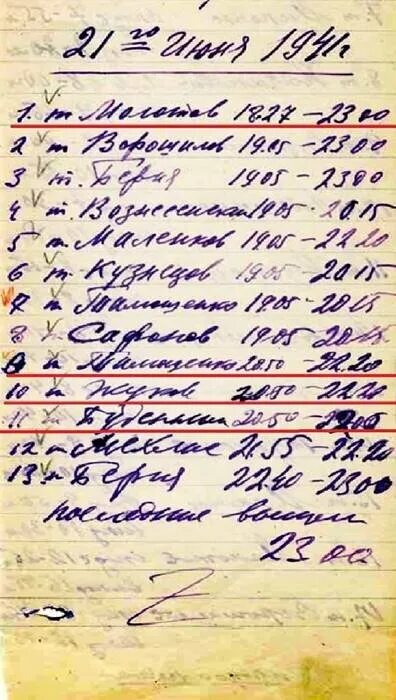 21го Июня 1941г
1. т. Молотов 1827 – 23 00
2 т. Ворошилов 19.05 – 23 00
3 т. Берия 1905 – 23 00
4 т. Вознесенский 1905 – 20.15
5 т. Маленков 1905 – 22.20
6 т. Кузнецов 1905 – 20.15
7 т. Тимошенко 1905 – 20 15
8 т. Сафонов 1905 – 20 15
9 т. Тимошенко 20.50 – 22.20
10 т. Жуков 20.50 – 22.20
11 т. Буденный 20.50 – 22.00
12 т. Мехлис 21.55 – 22.20
13 т. Берия 22.40 – 23 00
Последние вышли
23 00